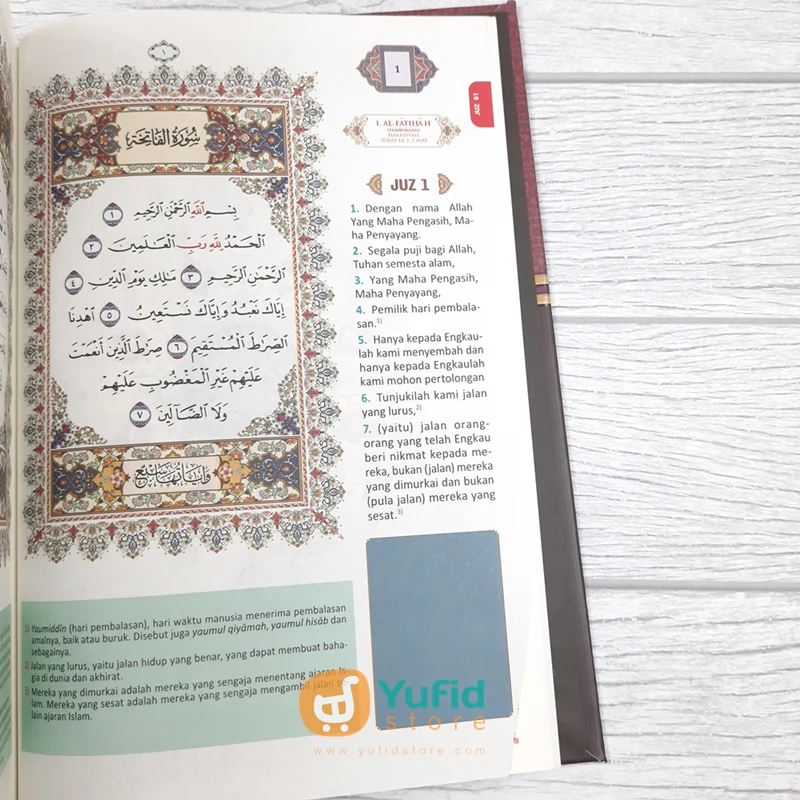 ١
سُورَةُ الفَاتِحَةِ
بِسْمِ اللَّهِ الرَّحْمَٰنِ الرَّحِيمِ ١
الْحَمْدُ لِلَّهِ رَبِّ الْعَالَمِينَ ٢
الرَّحْمَٰنِ الرَّحِيمِ ٣ مَالِكِ يَوْمِ الدِّينِ ٤
إِيَّاكَ نَعْبُدُ وَإِيَّاكَ نَسْتَعِينُ ٥ اهْدِنَا
الصِّرَاطَ الْمُسْتَقِيمَ ٦ صِرَاطَ الَّذِينَ أَنْعَمْتَ
عَلَيْهِمْ غَيْرِ الْمَغْضُوبِ عَلَيْهِمْ
وَلَا الضَّالِّينَ ٧
وَآيَاتُهَا سَبْعٌ
1
JUZ 01
1. AL-FATIHAH
(PEMBUKAAN)
MAKKIYYAH
SURAT KE 1: 7 AYAT
JUZ 1
1. Dengan nama Allah
Yang Maha Pengasih, Ma-
ha Penyayang.
2. Segala puji bagi Allah,
Tuhan semesta alam,
3. Yang Maha Pengasih,
Maha Penyayang,
4. Pemilik hari pembala-
san.1)
5. Hanya kepada Engkau-
lah kami menyembah dan
hanya kepada Engkaulah
kami mohon pertolongan
6. Tunjukilah kami jalan
yang lurus,2)
7. (yaitu) jalan orang-
orang yang telah Engkau
beri nikmat kepada me-
reka, bukan (jalan) mereka
yang dimurkai dan bukan
(pula jalan) mereka yang
sesat.3)
1) Yaumiddīn (hari pembalasan), hari waktu manusia menerima pembalasan
amalnya, baik atau buruk. Disebut juga yaumul qiyāmah, yaumul hisāb dan
sebagainya.
2) Jalan yang lurus, yaitu jalan hidup yang benar, yang dapat membuat baha-
gia di dunia dan akhirat.
3) Mereka yang dimurkai adalah mereka yang sengaja menentang ajaran Is-
lam. Mereka yang sesat adalah mereka yang sengaja mengambil jalan se-
lain ajaran Islam.
Yufid
store
www.yufidstore.com